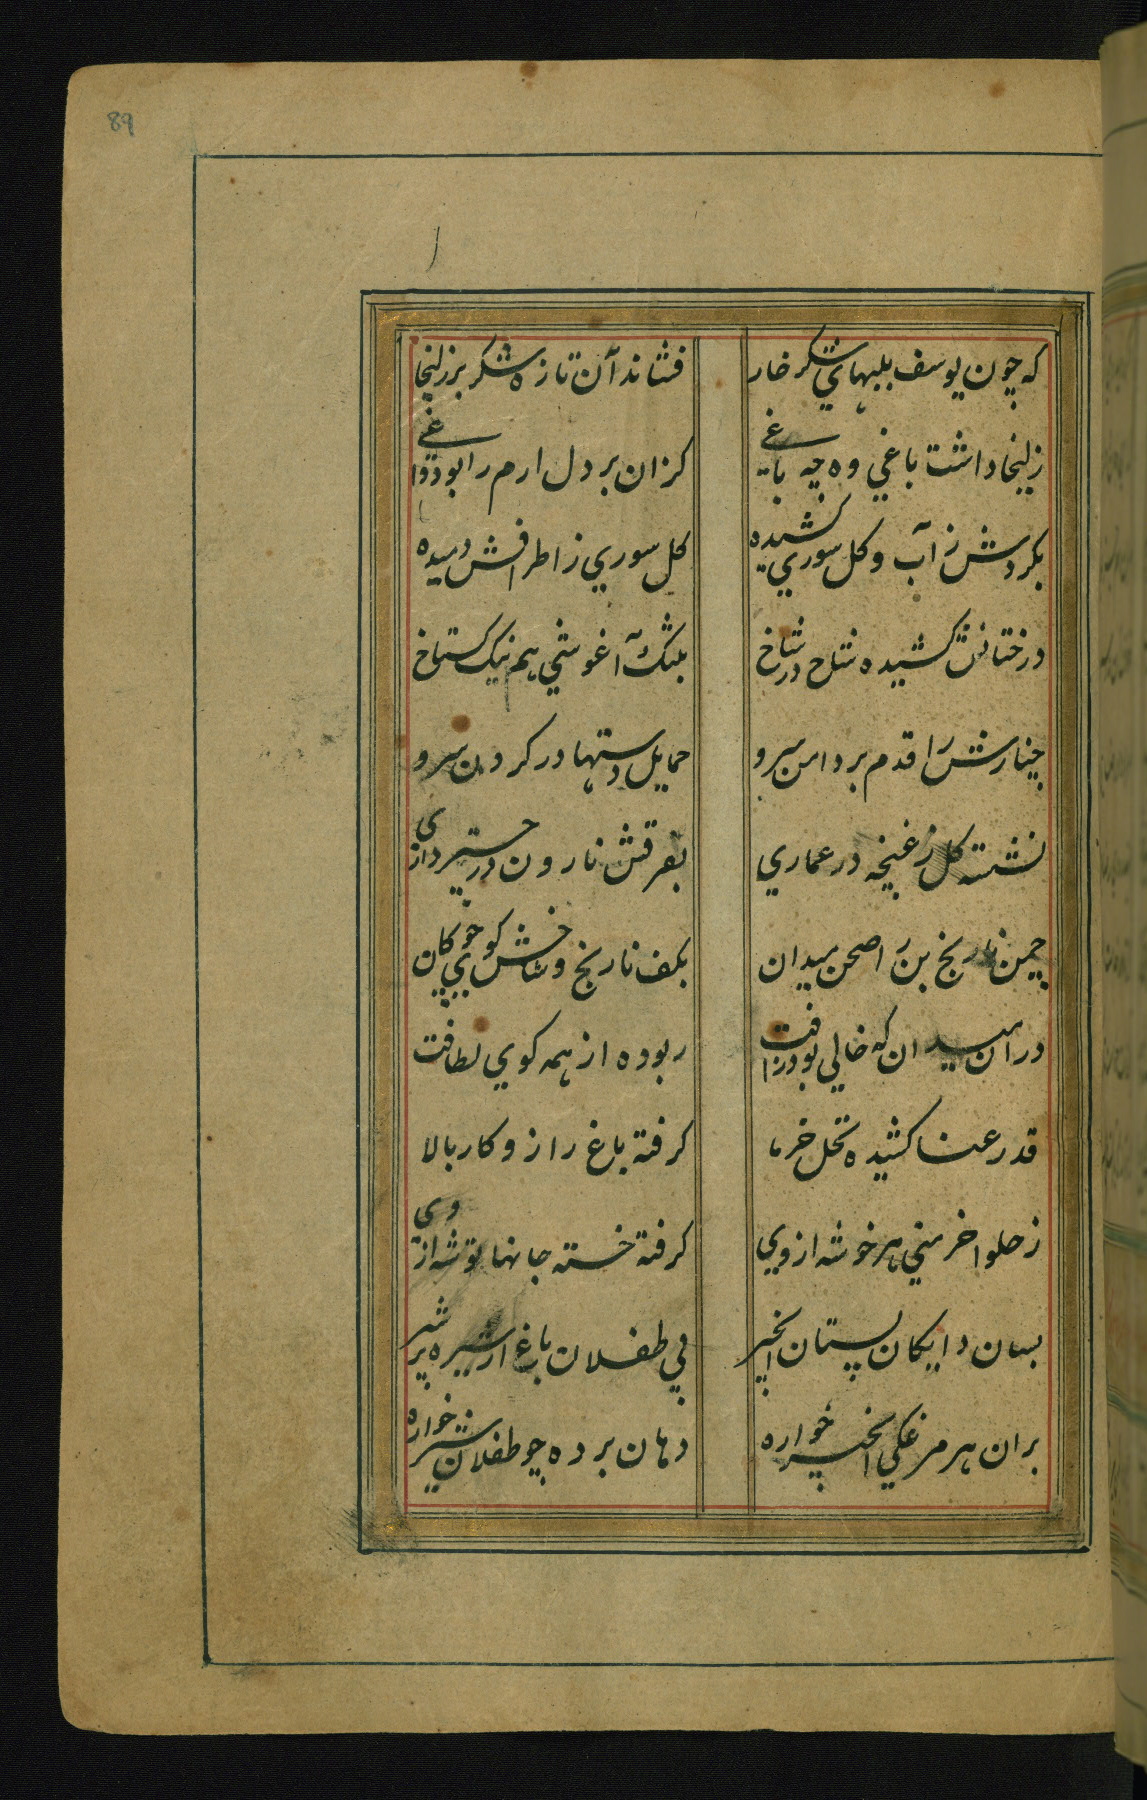 89
که چون یوسف بلبهای شکر خا فشاند آن تازه شکر بر زلیخا
زلیخا داشت باغی وه چه باغی کزان بر دل ارم را بود داغی
بکردش ز آب و کل سوری کشیده کل سوری ز اطرافش دمیده
درختانش کشیده شاخ در شاخ بتنک آغوشی هم نیک کستاخ
چنارش را قدم بر دامن سرو حمایل دستها در کردن سرو
نشسته کل ز غنچه در عماری بفرقش نارون در چتر داری
چمن نارنج بن را صحن میدان بکف نارنج و شاخش کوی چوکان
در آن میدان که خالی بود ز آفت ربوده از همه کوی لطافت
قد رعنا کشیده نخل خرما کرفته باغ را زو کار بالا
ز حلوا خرمنی هر خوشه از وی کرفته خسته جانها توشه از وی
بسان دایکان پستان انجیر پی طفلان باغ از شیره پر شیر
بران هر مرغکی انجیر خواره دهان برده چو طفلان شیر خواره